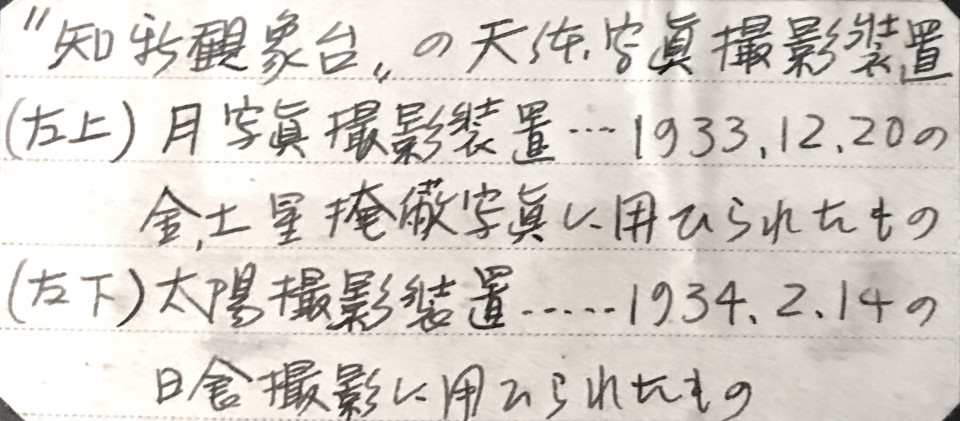 "知新観象台〟の天体写眞撮影装置
(左上)月写眞撮影装置…1933.12.20の
金,土星掩蔽写眞に用ひられたもの
(左下)太陽撮影装置……1934.2.14の
日食撮影に用ひられたもの